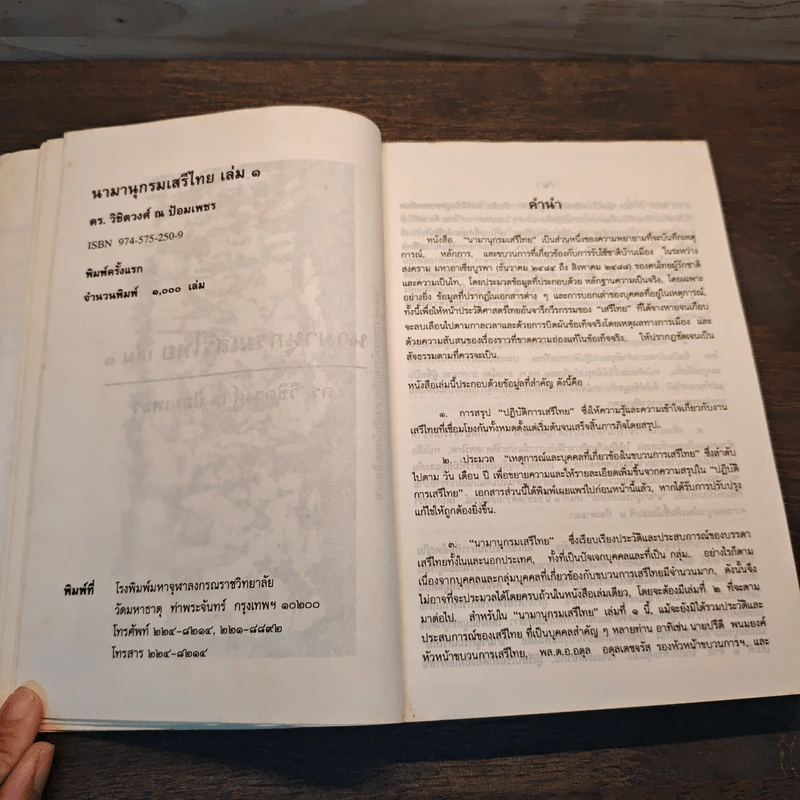 นามานุกรมเสรีไทย เล่ม ๑
ดร. วิชิตวงศ์ ณ ป้อมเพชร
ISBN 974-575-250-9
พิมพ์ครั้งแรก
จำนวนพิมพ์ ๑,๐๐๐ เล่ม
พิมพ์ที่ โรงพิมพ์มหาจุฬาลงกรณราชวิทยาลัย
วัดมหาธาตุ ท่าพระจันทร์ กรุงเทพฯ ๑๐๒๐๐
โทรศัพท์ ๒๒๔-๘๒๑๔, ๒๒๑-๘๘๙๒
โทรสาร ๒๒๔-๘๒๑๔
คำนำ
หนังสือ "นามานุกรมเสรีไทย" เป็นส่วนหนึ่งของความพยายามที่จะบันทึกเหตุ
การณ์, หลักการ, และขบวนการที่เกี่ยวข้องกับการรับใช้ชาติบ้านเมือง ในระหว่าง
สงคราม มหาอาเซียบูรพา (ธันวาคม ๒๔๘๔ ถึง สิงหาคม ๒๔๘๘) ของคนไทยผู้รักชาติ
และความเป็นไท, โดยประมวลข้อมูลที่ประกอบด้วย หลักฐานความเป็นจริง, โดยเฉพาะ
อย่างยิ่ง ข้อมูลที่ปรากฏในเอกสารต่าง ๆ และการบอกเล่าของบุคคลที่อยู่ในเหตุการณ์,
ทั้งนี้เพื่อให้หน้าประวัติศาสตร์ไทยอันจารึกวีรกรรมของ "เสรีไทย" ที่ได้จางหายจนเกือบ
จะลบเลือนไปตามกาลเวลาและด้วยการบิดผันข้อเท็จจริงโดยเหตุผลทางการเมือง และ
ด้วยความสับสนของเรื่องราวที่ขาดความถ่องแท้ในข้อเท็จจริง, ให้ปรากฏชัดเจนเป็น
สัจธรรมตามที่ควรจะเป็น.
หนังสือเล่มนี้ประกอบด้วยข้อมูลที่สำคัญ ดังนี้คือ
๑. การสรุป "ปฏิบัติการเสรีไทย" ซึ่งให้ความรู้และความเข้าใจเกี่ยวกับงาน
เสรีไทยที่เชื่อมโยงกันทั้งหมดตั้งแต่เริ่มต้นจนเสร็จสิ้นภารกิจโดยสรุป.
๒. ประมวล "เหตุการณ์และบุคคลที่เกี่ยวข้องในขบวนการเสรีไทย" ซึ่งลำดับ
ไปตาม วัน เดือน ปี เพื่อขยายความและให้รายละเอียดเพิ่มขึ้นจากความสรุปใน "ปฏิบัติ
การเสรีไทย". เอกสารส่วนนี้ได้พิมพ์เผยแพร่ไปก่อนหน้านี้แล้ว, หากได้รับการปรับปรุง
แก้ไขให้ถูกต้องยิ่งขึ้น.
๓. "นามานุกรมเสรีไทย" ซึ่งเรียบเรียงประวัติและประสบการณ์ของบรรดา
เสรีไทยทั้งในและนอกประเทศ, ทั้งที่เป็นปัจเจกบุคคลและที่เป็น กลุ่ม. อย่างไรก็ตาม
เนื่องจากบุคคลและกลุ่มบุคคลที่เกี่ยวข้องกับขบวนการเสรีไทยมีจำนวนมาก, ดังนั้นจึง
ไม่อาจที่จะประมวลได้โดยครบถ้วนในหนังสือเล่มเดียว, โดยจะต้องมีเล่มที่ ๒ ที่จะตาม
มาต่อไป. สำหรับใน "นามานุกรมเสรีไทย" เล่มที่ ๑ นี้, แม้จะยังมิได้รวมประวัติและ
ประสบการณ์ของเสรีไทย ที่เป็นบุคคลสำคัญ ๆ หลายท่าน อาทิเช่น นายปรีดี พนมยงค์
หัวหน้าขบวนการเสรีไทย, พล.ต.อ.อดุล อดุลเดชจรัส รองหัวหน้าขบวนการฯ, และ